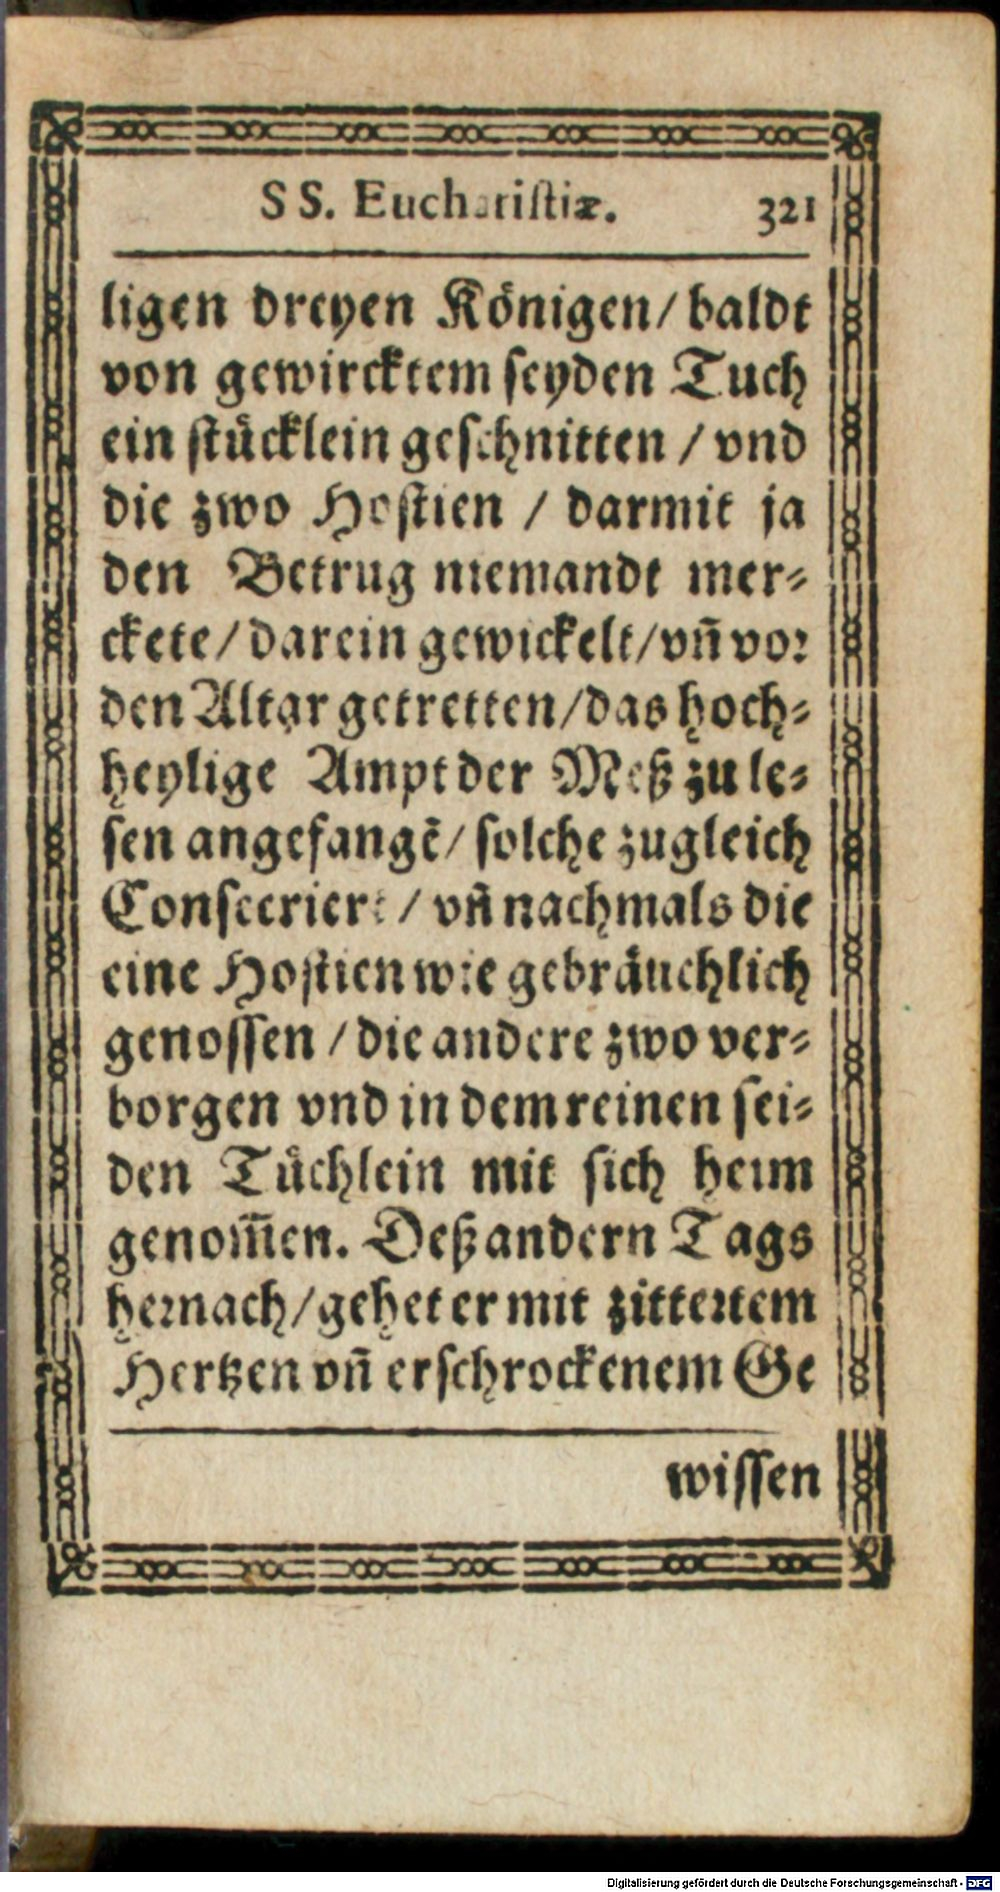 SS. Euchariſtiæ. 321
ligen dreyen Königen/ baldt
von gewircktem ſeyden Tuch
ein ſtücklein geſchnitten / vnd
die zwo Hoſtien / darmit ja
den Betrug niemandt mer⸗
ckete/ darein gewickelt/ vn̄ vor
den Altar getretten/ das hoch⸗
heylige Ampt der Meß zu le⸗
ſen angefangē/ ſolche zugleich
Conſecriert / vn̄ nachmals die
eine Hoſtien wie gebräuchlich
genoſſen / die andere zwo ver⸗
borgen vnd in dem reinen ſei⸗
den Tüchlein mit ſich heim
genom̄en. Deß andern Tags
hernach/ gehet er mit zittertem
Hertzen vn̄ erſchrockenem Ge
wiſſen
Digitalisierung gefördert durch die Deutsche Forschungsgemeinschaft - DFG